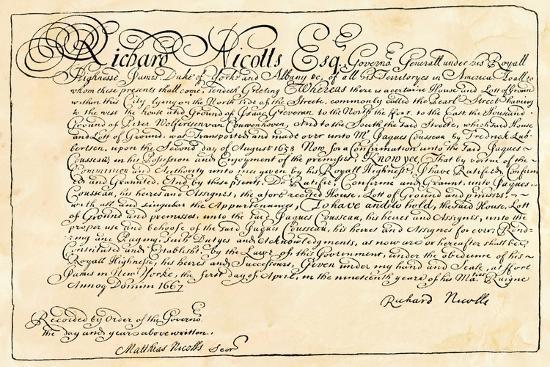 Richard Nicolls Esq. Governo. Generall under his Royall
Highnesse James Duke of Yorke and Albany &c. of all his Territoryes in America To all to
whom these presents shall come, sendeth Greeting Whereas there is a certaine House and Lott of Ground
within this City lying on the North side of the Streete, commonly called the Pearl Street having
to the west the house and Ground of Isaac Greveraet to the North the to the East the House and
Ground of Pieter Wolfersen van Couwenhoven, And to the South the said Streete, which said House
and Lott of Ground, was Transported and made over unto Mr. Jaques Cousseau by Fredrick Lub-
bersen, upon the Second day of August 1658 Now for a Confirmation unto the said Jaques
Cousseau, in his Possession and Enjoyment of the premisses, Know yee, That by vertue of the
Commission and Authority unto mee given by his Royall Highnesse, I have Ratifyed, Confirmed
and Graunted, And by these presents, Do Ratifie, Confirme and Graunt, unto Jaques
Cousseau, his heires and Assignes, the afore recited House, Lott of Ground and premisses
with all and singular the Appurtenances, To have and to hold, the said House, Lott
of Ground and premisses, unto the said Jaques Cousseau, his heires and Assignes, unto the
proper use and behoofe of the said Jaques Cousseau, his heires and Assignes for ever, Rend-
ring and Paying, such Dutyes and Acknowledgments, as now are or hereafter shall be
Constituted and Establisht by the Lawes of this Government, under the obedience of his
Royall Highnesse, his heires and Successours, Given under my hand and Seale, at ffort
James in New Yorke, the first day of April, in the nineteenth yeare of his Maties Raigne
Annoq Domini 1667
Richard Nicolls
Recorded by Order of the Governo.
the day and yeare above written.
Matthias Nicolls Secr.